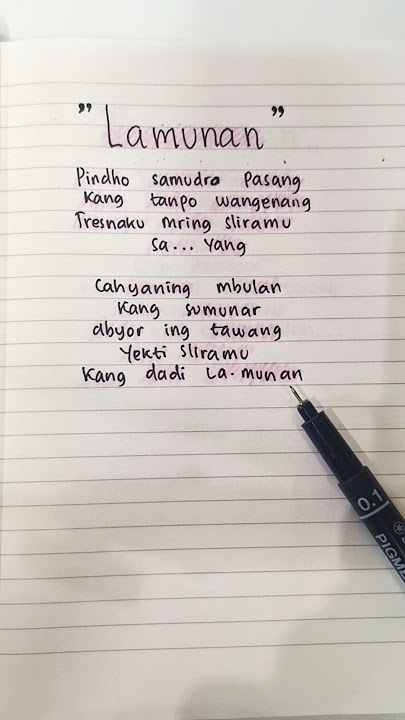 " Lamunan "
Pindho samudro Pasang
Kang tanpo wangenang
Tresnaku mring sliramu
sa... Yang
Cahyaning mbulan
Kang sumunar
abyor ing tawang
Yekti sliramu
Kang dadi La.munan
0.1
PIGM